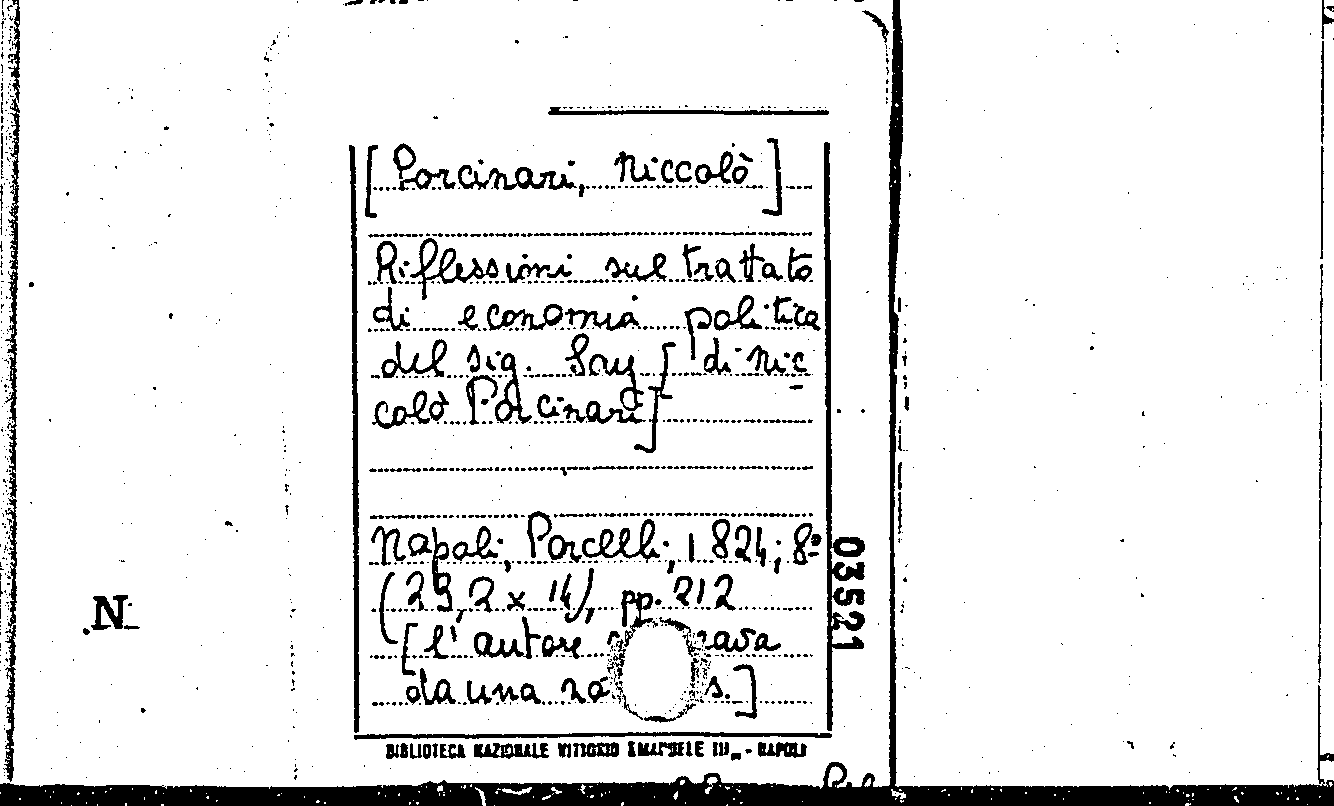 [Porcinari, Niccolò]
Riflessioni sul trattato
di economia politica
del sig. Say [di Nic
colò Porcinari]
Napoli, Porcelli, 1824; 8º
(23,2 x 14), pp. 212
[l'autore
da una
s.]
03521
N
BIBLIOTECA NAZIONALE VITTORIO EMANUELE III - NAPOLI